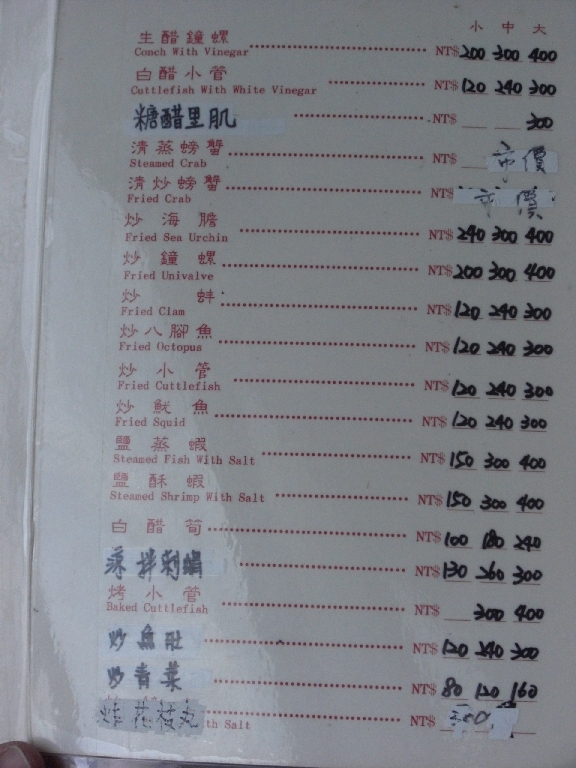 小 中 大
生醋鐘螺 NT$ 200 300 400
Conch With Vinegar
白醋小管 NT$ 120 240 300
Cuttlefish With White Vinegar
糖醋里肌 NT$ 300
清蒸螃蟹 NT$ 市價
Steamed Crab
清炒螃蟹 NT$ 市價
Fried Crab
炒海膽 NT$ 240 300 400
Fried Sea Urchin
炒鐘螺 NT$ 200 300 400
Fried Univalve
炒蚌 NT$ 120 240 300
Fried Clam
炒八腳魚 NT$ 120 240 300
Fried Octopus
炒小管 NT$ 120 240 300
Fried Cuttlefish
炒魷魚 NT$ 120 240 300
Fried Squid
鹽蒸蝦 NT$ 150 300 400
Steamed Fish With Salt
鹽酥蝦 NT$ 150 300 400
Steamed Shrimp With Salt
白醋筍 NT$ 100 180 240
涼拌刺蝟 NT$ 130 260 300
烤小管 NT$ 300 400
Baked Cuttlefish
炒魚肚 NT$ 120 240 300
炒青菜 NT$ 80 120 160
炸花枝丸 NT$ 300
th Salt